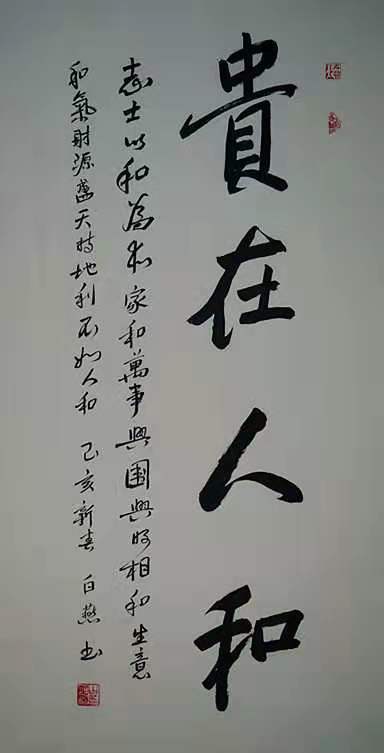 貴在人和
志士以和為本家和萬事興國興相和生意
和氣財源盛天時地利不如人和 己亥新春 白燕书